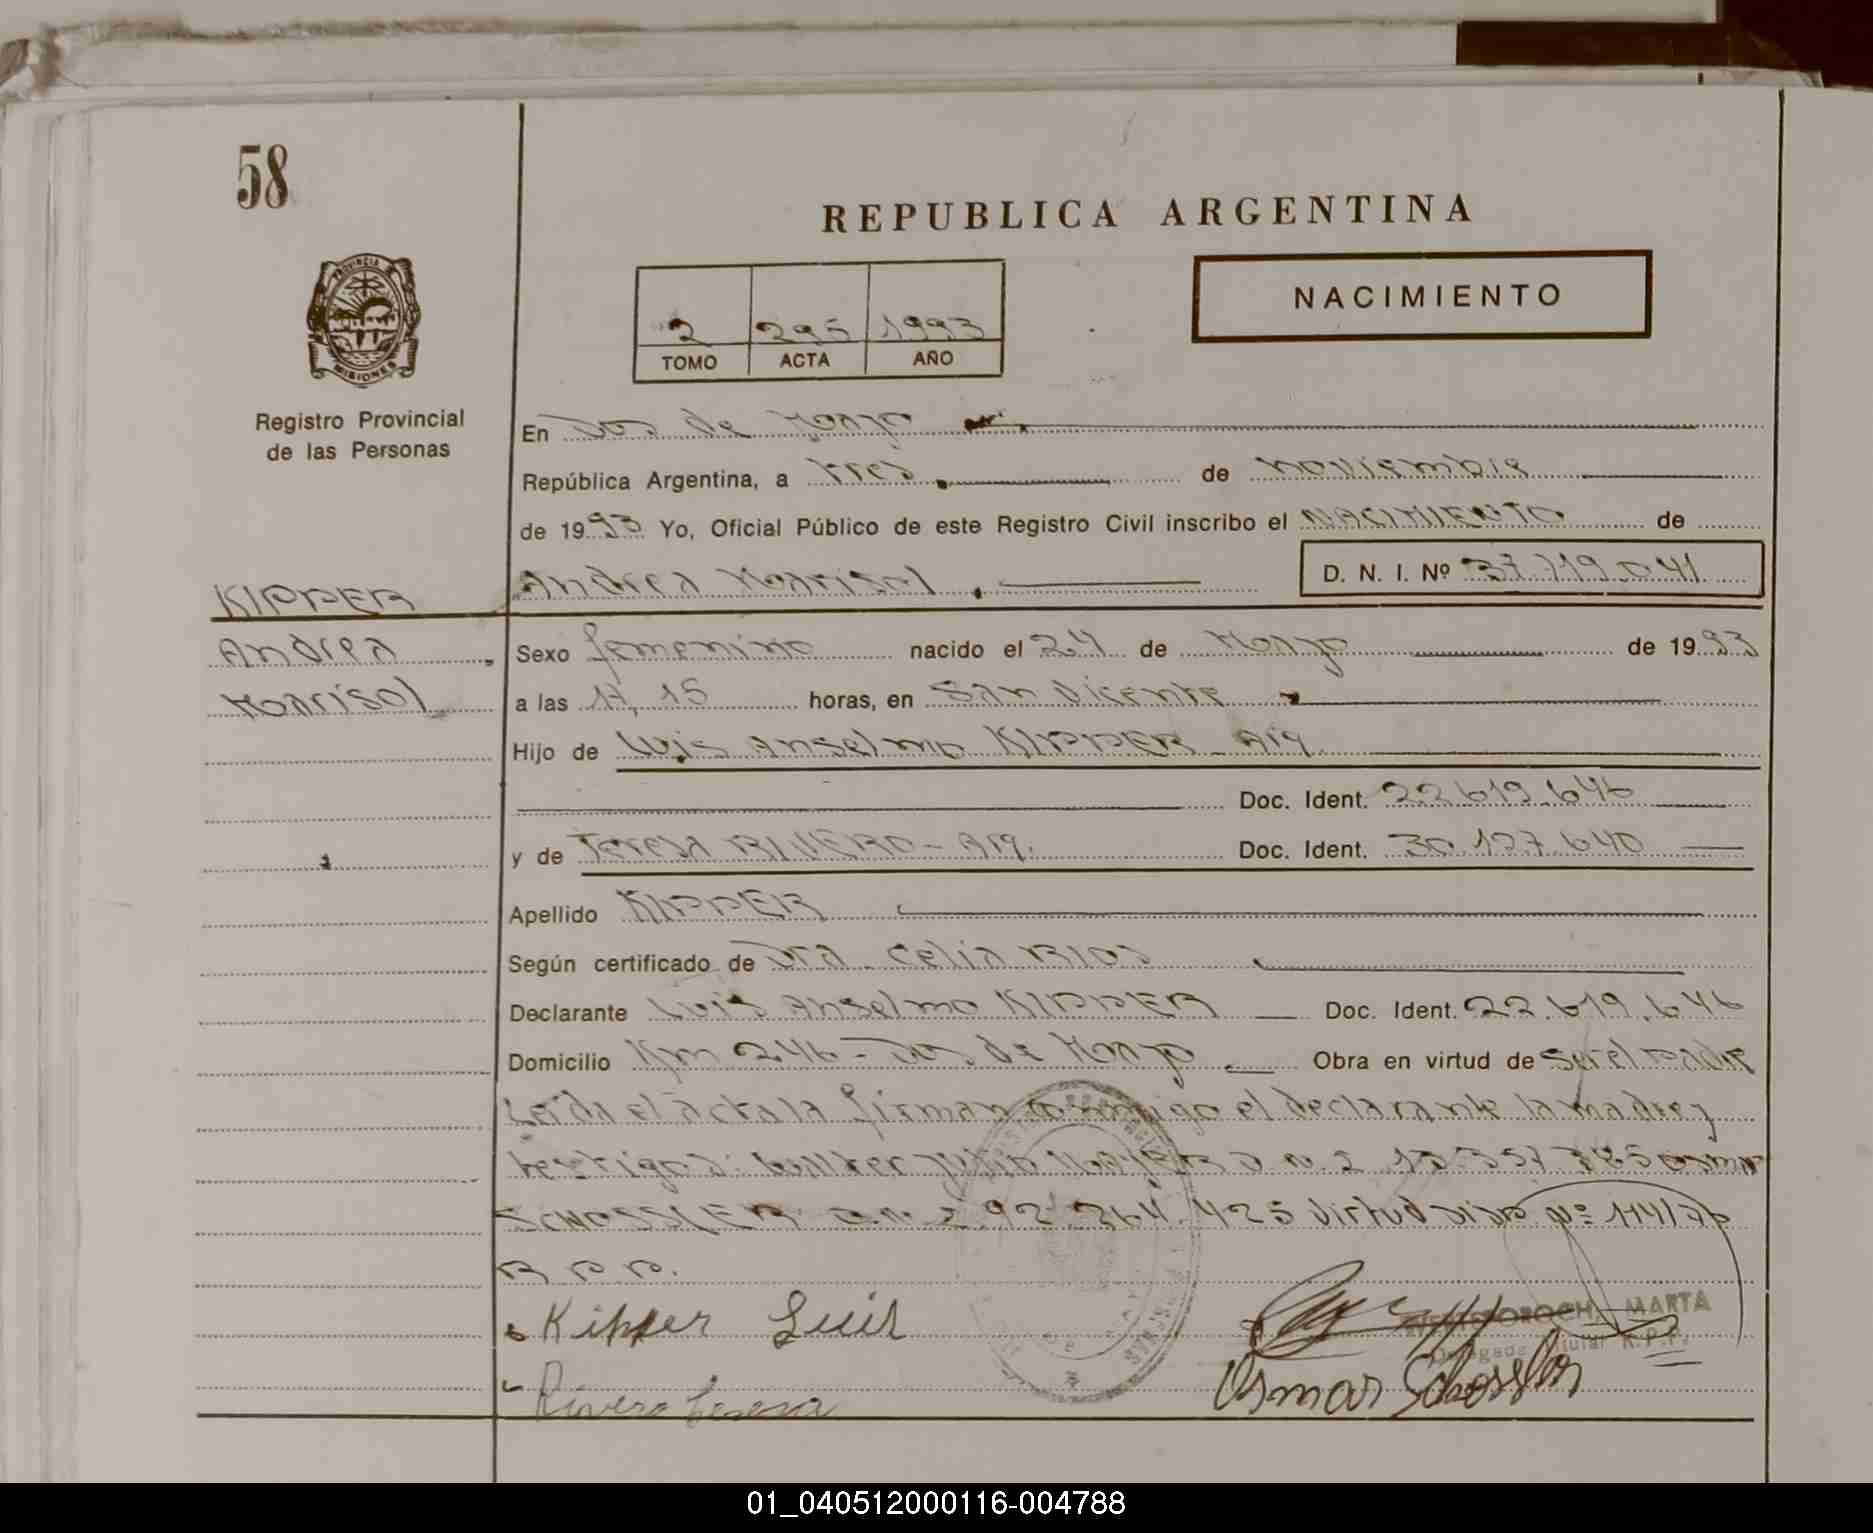 58
REPUBLICA ARGENTINA
NACIMIENTO
2 295 1993
TOMO ACTA AÑO
PROVINCIA DE
MISIONES
Registro Provincial
de las Personas
En Dos de Mayo
República Argentina, a tres de noviembre
de 1993 Yo, Oficial Público de este Registro Civil inscribo el NACIMIENTO de
Andrea Marisol D. N. I. Nº 37.719.041
KIPPER
Andrea
Marisol
Sexo femenino nacido el 24 de Mayo de 1993
a las 17,15 horas, en San Vicente
Hijo de Luis Anselmo KIPPER Arg
Doc. Ident. 22.619.646
y de Teresa RIVERO - Arg. Doc. Ident. 30.127.640
Apellido KIPPER
Según certificado de Dra. Celia RIOS
Declarante Luis Anselmo KIPPER Doc. Ident. 22.619.646
Domicilio Km 246 - Dos de Mayo Obra en virtud de ser el padre
Leida el acta la firman conmigo el declarante la madre y
testigos: Julio 385 Osmar
SCHOSSLER 92 364 425 virtud Nº 114/76
R P P.
Kipper Luis
MARTA
Delegada Titular R.P.P.
Rivero Teresa
Osmar Schossler
01_040512000116-004788